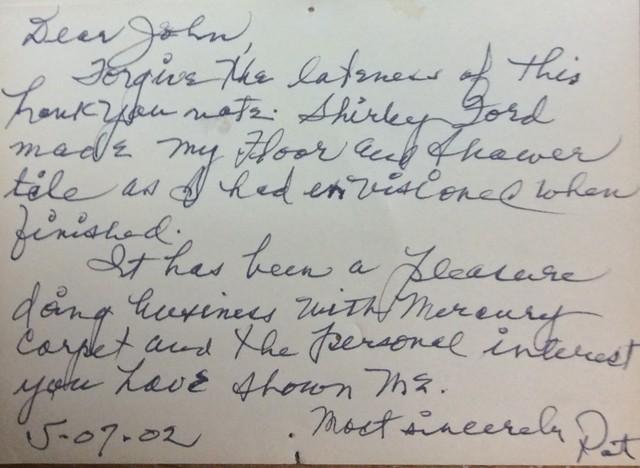 Dear John,
Forgive the lateness of this
thank you note. Shirley Ford
made my Floor and shower
tile as I had envisioned when
finished.
It has been a pleasure
doing business with Mercury
Carpet and the personal interest
you have shown me.
5-07-02 Most sincerely Pat